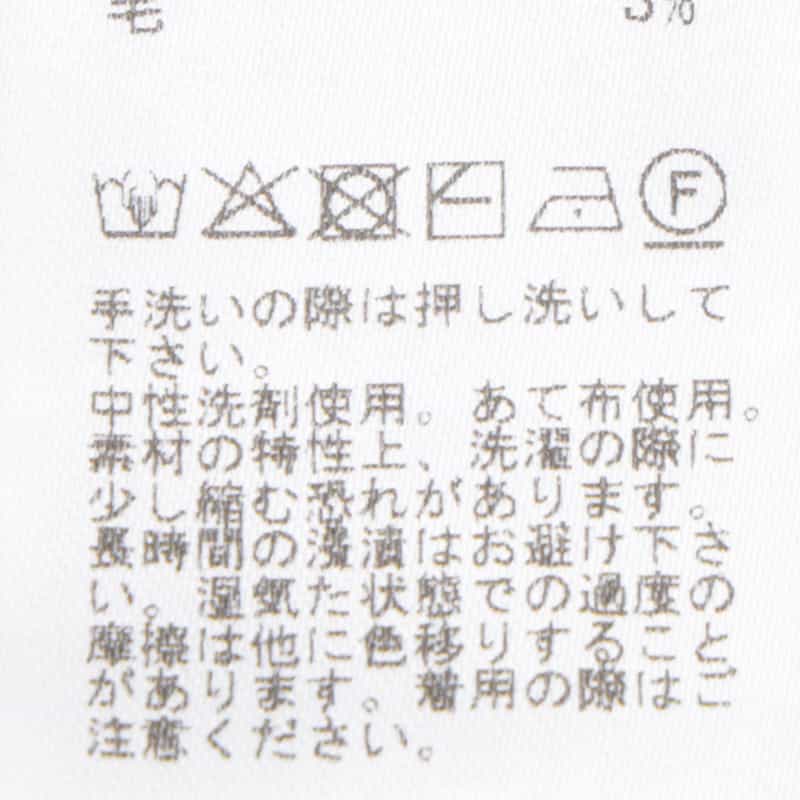 毛 5%
F
手洗いの際は押し洗いして
下さい。
中性洗剤使用。あて布使用。
素材の特性上、洗濯の際に
少し縮む恐れがあります。
長時間の濡漬はお避け下さ
い。湿気た状態での過度の
摩擦は他に色移りすること
があります。着用の際はご
注意ください。